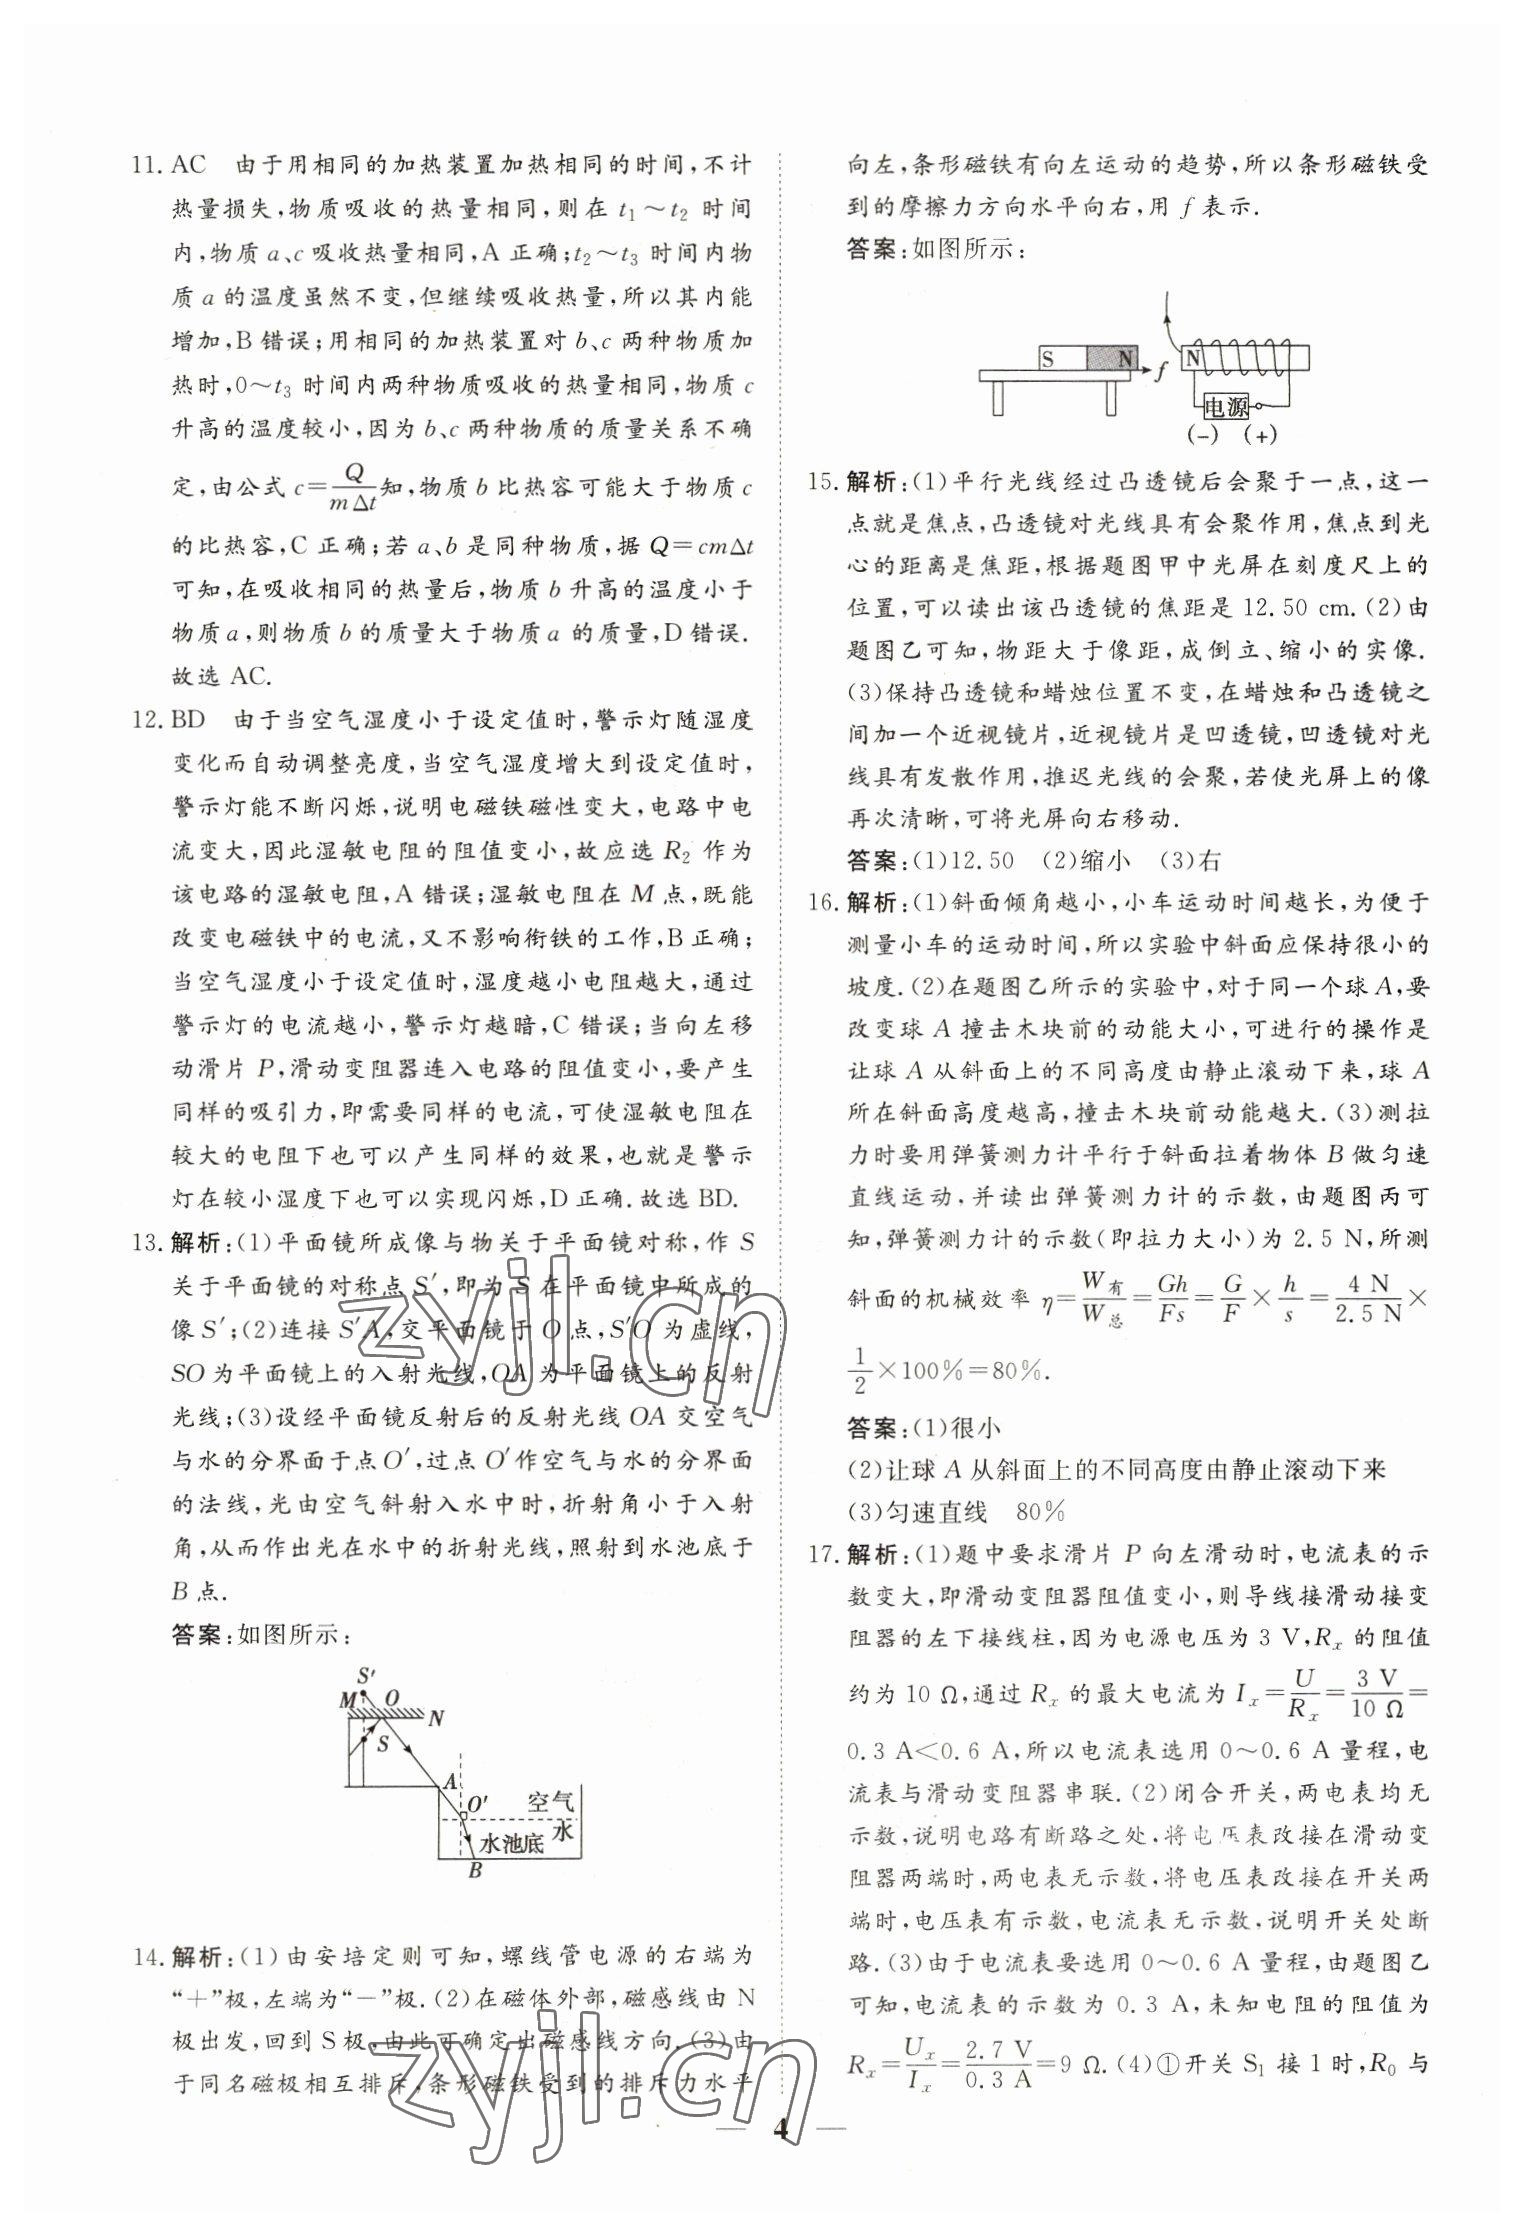 11. AC　由于用相同的加热装置加热相同的时间,不计
热量损失,物质吸收的热量相同,则在 t₁～t₂ 时间
内,物质 a、c 吸收热量相同,A 正确;t₂～t₃ 时间内物
质 a 的温度虽然不变,但继续吸收热量,所以其内能
增加,B 错误;用相同的加热装置对 b、c 两种物质加
热时,0～t₃ 时间内两种物质吸收的热量相同,物质 c
升高的温度较小,因为 b、c 两种物质的质量关系不确
定,由公式 c=Q/(mΔt)知,物质 b 比热容可能大于物质 c
的比热容,C 正确;若 a、b 是同种物质,据 Q=cmΔt
可知,在吸收相同的热量后,物质 b 升高的温度小于
物质 a,则物质 b 的质量大于物质 a 的质量,D 错误.
故选 AC.
12. BD　由于当空气湿度小于设定值时,警示灯随湿度
变化而自动调整亮度,当空气湿度增大到设定值时,
警示灯能不断闪烁,说明电磁铁磁性变大,电路中电
流变大,因此湿敏电阻的阻值变小,故应选 R₂ 作为
该电路的湿敏电阻,A 错误;湿敏电阻在 M 点,既能
改变电磁铁中的电流,又不影响衔铁的工作,B 正确;
当空气湿度小于设定值时,湿度越小电阻越大,通过
警示灯的电流越小,警示灯越暗,C 错误;当向左移
动滑片 P,滑动变阻器连入电路的阻值变小,要产生
同样的吸引力,即需要同样的电流,可使湿敏电阻在
较大的电阻下也可以产生同样的效果,也就是警示
灯在较小湿度下也可以实现闪烁,D 正确.故选 BD.
13. 解析:(1)平面镜所成像与物关于平面镜对称,作 S
关于平面镜的对称点 S′,即为 S 在平面镜中所成的
像 S′;(2)连接 S′A,交平面镜于 O 点,S′O 为虚线,
SO 为平面镜上的入射光线,OA 为平面镜上的反射
光线;(3)设经平面镜反射后的反射光线 OA 交空气
与水的分界面于点 O′,过点 O′作空气与水的分界面
的法线,光由空气斜射入水中时,折射角小于入射
角,从而作出光在水中的折射光线,照射到水池底于
B 点.
答案:如图所示:
S′
M O
N
S
A
O′ 空气
水
水池底
B
14. 解析:(1)由安培定则可知,螺线管电源的右端为
“＋”极,左端为“－”极.(2)在磁体外部,磁感线由 N
极出发,回到 S 极,由此可确定出磁感线方向.(3)由
于同名磁极相互排斥,条形磁铁受到的排斥力水平
向左,条形磁铁有向左运动的趋势,所以条形磁铁受
到的摩擦力方向水平向右,用 f 表示.
答案:如图所示:
S N f N
电源
(－) (＋)
15. 解析:(1)平行光线经过凸透镜后会聚于一点,这一
点就是焦点,凸透镜对光线具有会聚作用,焦点到光
心的距离是焦距,根据题图甲中光屏在刻度尺上的
位置,可以读出该凸透镜的焦距是 12.50 cm.(2)由
题图乙可知,物距大于像距,成倒立、缩小的实像.
(3)保持凸透镜和蜡烛位置不变,在蜡烛和凸透镜之
间加一个近视镜片,近视镜片是凹透镜,凹透镜对光
线具有发散作用,推迟光线的会聚,若使光屏上的像
再次清晰,可将光屏向右移动.
答案:(1)12.50　(2)缩小　(3)右
16. 解析:(1)斜面倾角越小,小车运动时间越长,为便于
测量小车的运动时间,所以实验中斜面应保持很小的
坡度.(2)在题图乙所示的实验中,对于同一个球 A,要
改变球 A 撞击木块前的动能大小,可进行的操作是
让球 A 从斜面上的不同高度由静止滚动下来,球 A
所在斜面高度越高,撞击木块前动能越大.(3)测拉
力时要用弹簧测力计平行于斜面拉着物体 B 做匀速
直线运动,并读出弹簧测力计的示数,由题图丙可
知,弹簧测力计的示数(即拉力大小)为 2.5 N,所测
斜面的机械效率 η=W有/W总=Gh/Fs=G/F×h/s=4 N/2.5 N×
1/2×100%=80%.
答案:(1)很小
(2)让球 A 从斜面上的不同高度由静止滚动下来
(3)匀速直线　80%
17. 解析:(1)题中要求滑片 P 向左滑动时,电流表的示
数变大,即滑动变阻器阻值变小,则导线接滑动接变
阻器的左下接线柱,因为电源电压为 3 V,Rₓ 的阻值
约为 10 Ω,通过 Rₓ 的最大电流为 Iₓ=U/Rₓ=3 V/10 Ω=
0.3 A<0.6 A,所以电流表选用 0～0.6 A 量程,电
流表与滑动变阻器串联.(2)闭合开关,两电表均无
示数,说明电路有断路之处,将电压表改接在滑动变
阻器两端时,两电表无示数,将电压表改接在开关两
端时,电压表有示数,电流表无示数,说明开关处断
路.(3)由于电流表要选用 0～0.6 A 量程,由题图乙
可知,电流表的示数为 0.3 A,未知电阻的阻值为
Rₓ=Uₓ/Iₓ=2.7 V/0.3 A=9 Ω.(4)①开关 S₁ 接 1 时,R₀ 与
— 4 —
zyjl.cn
zyjl.cn